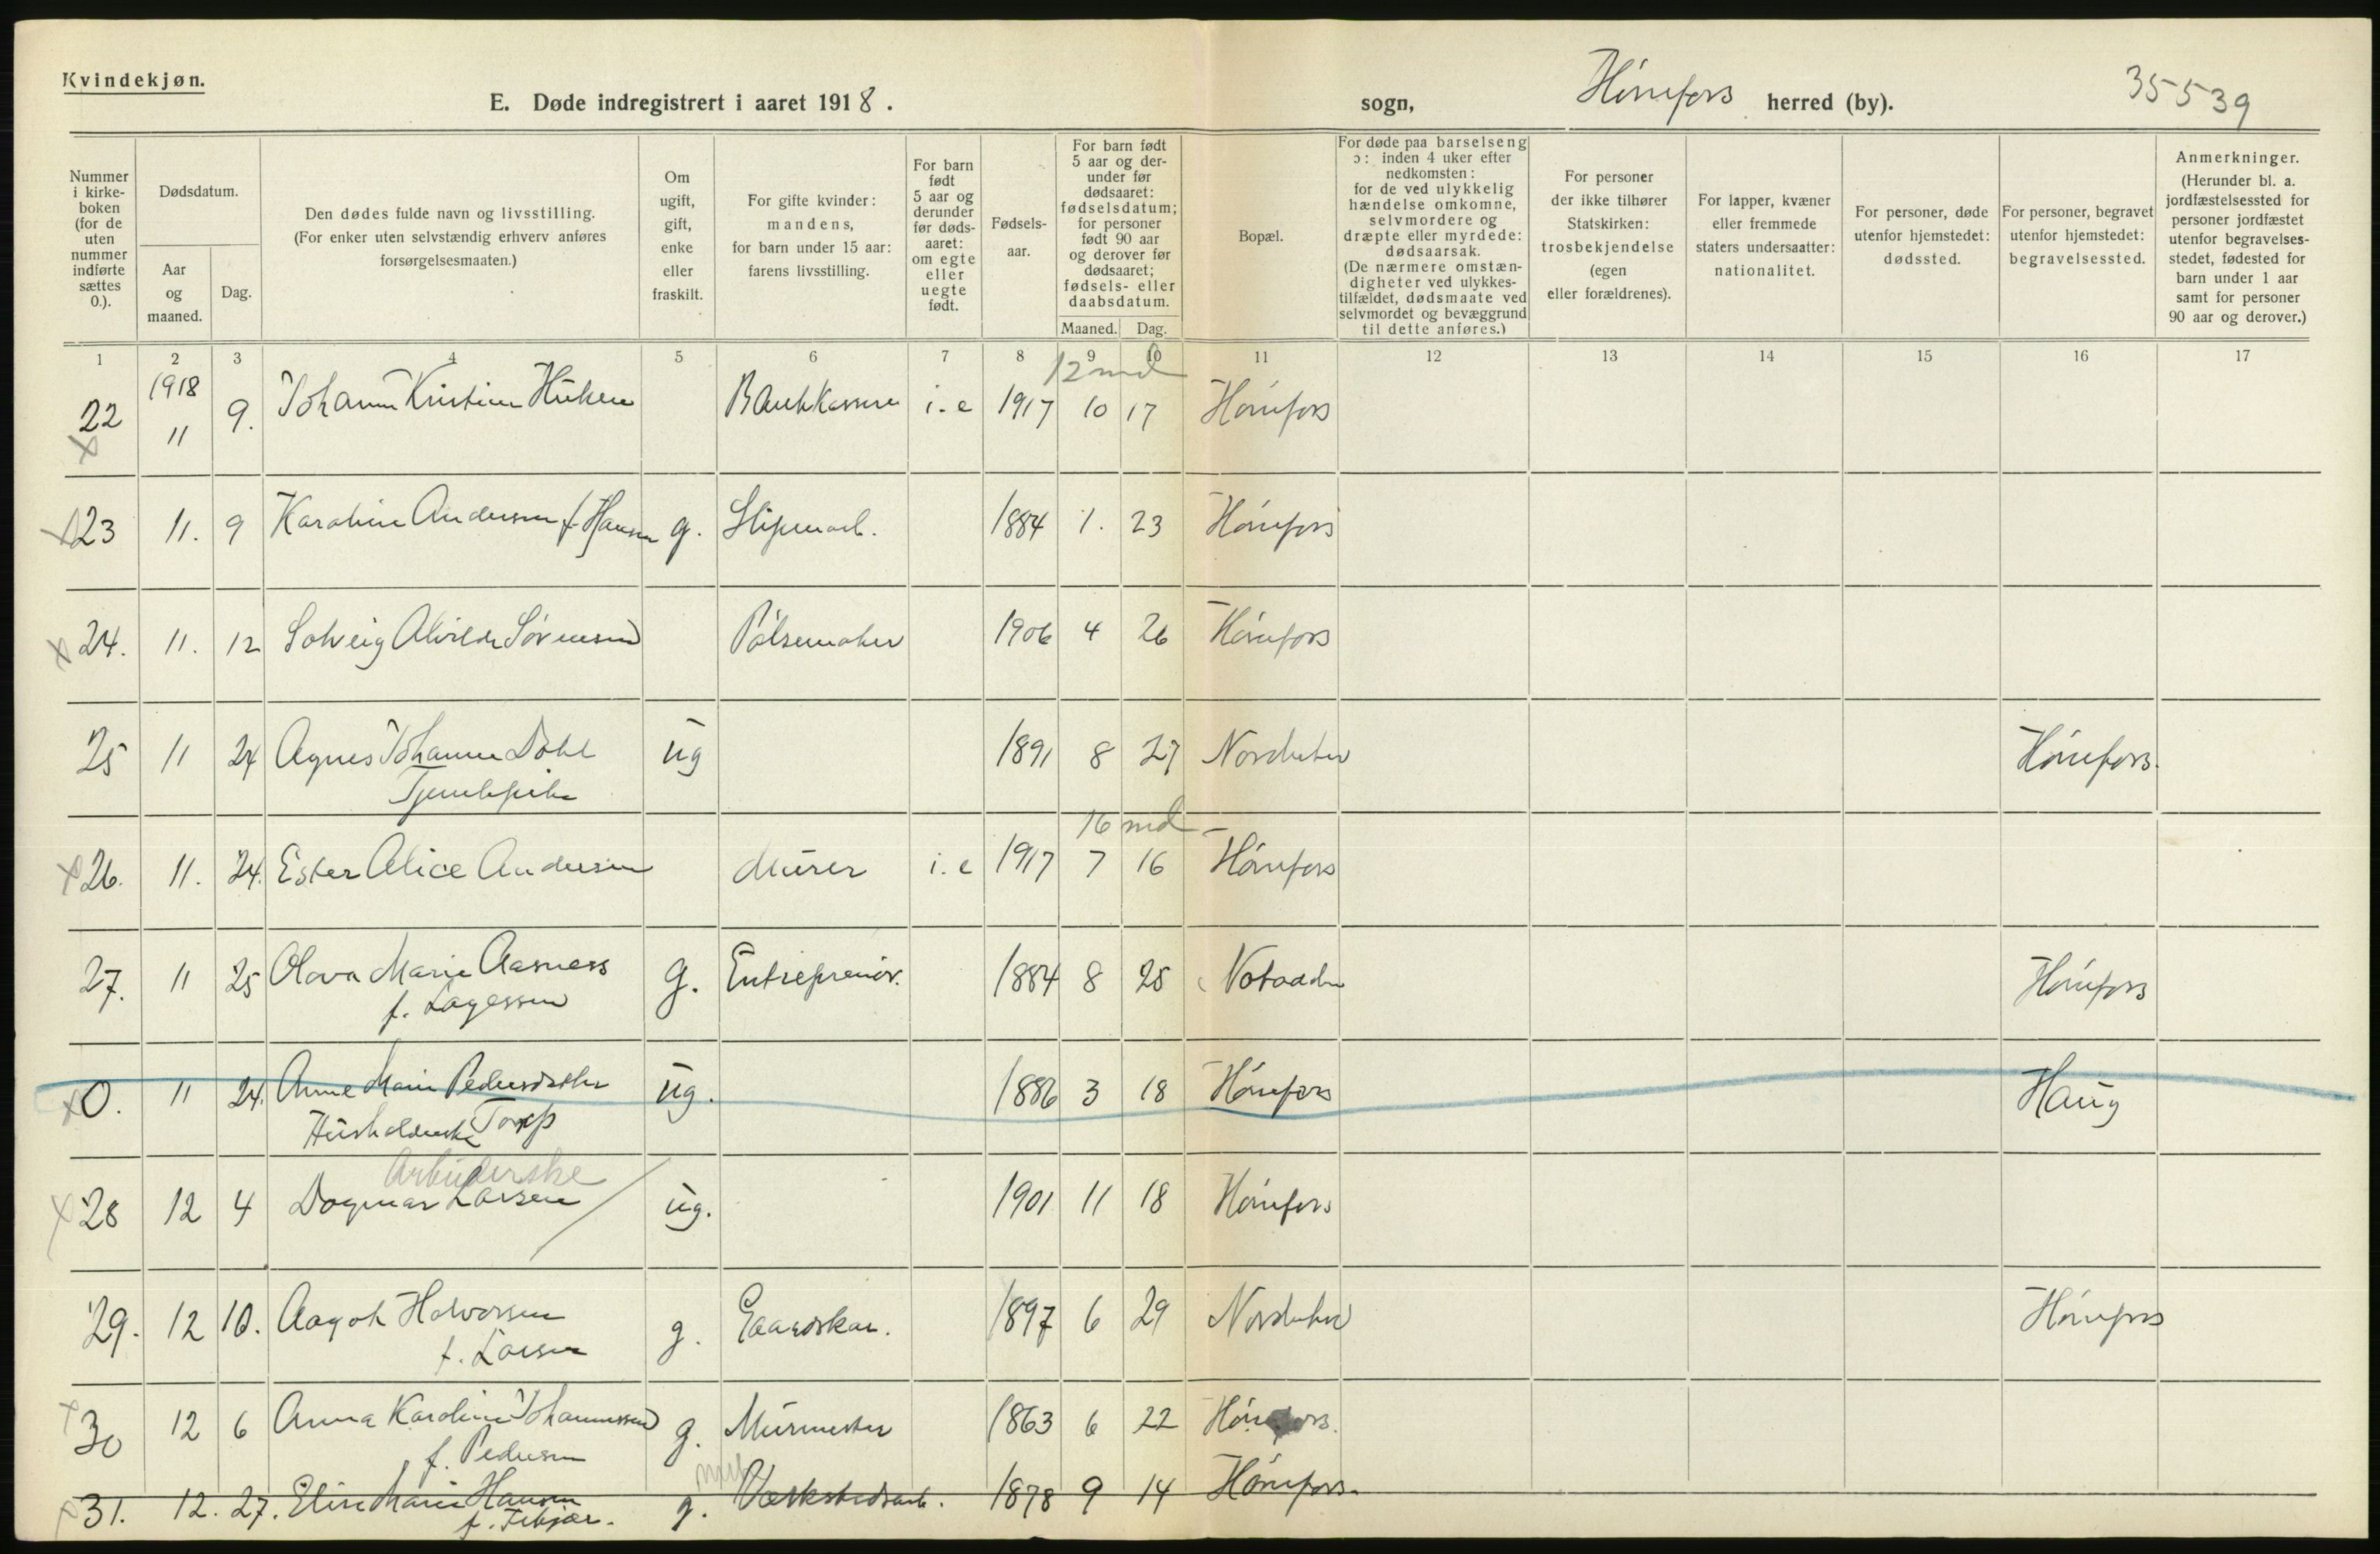 Kvindekjøn.
E. Døde indregistrert i aaret 1918.
sogn, Hønefoss herred (by).
35539
Nummer i kirke- boken (for de uten nummer indførte sættes 0.).
Dødsdatum.
Aar og maaned.
Dag.
Den dødes fulde navn og livsstilling.
(For enker uten selvstændig erhverv anføres forsørgelsesmaaten.)
Om ugift, gift, enke eller fraskilt.
For gifte kvinder: mandens, for barn under 15 aar: farens livsstilling.
For barn født 5 aar og derunder før døds- aaret: om egte eller uegte født.
Fødsels- aar.
For barn født 5 aar og der- under før dødsaaret: fødselsdatum; for personer født 90 aar og derover før dødsaaret; fødsels- eller daabsdatum.
Maaned.
Dag.
Bopæl.
For døde paa barselseng ɔ: inden 4 uker efter nedkomsten: for de ved ulykkelig hændelse omkomne, selvmordere og dræpte eller myrdede: dødsaarsak.
(De nærmere omstæn- digheter ved ulykkes- tilfældet, dødsmaate ved selvmordet og bevæggrund til dette anføres.)
For personer der ikke tilhører Statskirken: trosbekjendelse (egen eller forældrenes).
For lapper, kvæner eller fremmede staters undersaatter: nationalitet.
For personer, døde utenfor hjemstedet: dødssted.
For personer, begravet utenfor hjemstedet: begravelsessted.
Anmerkninger.
(Herunder bl. a. jordfæstelsessted for personer jordfæstet utenfor begravelses- stedet, fødested for barn under 1 aar samt for personer 90 aar og derover.)
1 2 3 4 5 6 7 8 9 10 11 12 13 14 15 16 17
1918 12 md
22 11 9. Johanne Kristine Bankkasserer i.e 1917 10 17 Hønefoss
23 11. 9 Karoline Andersen f. Hansen g. Sliperiarb. 1884 1. 23 Hønefoss
24. 11. 12 Solveig Alvilde Sørensen Pølsemaker 1906 4 26 Hønefoss
25 11 24 Agnes Johanne Dahl ug 1891 8 27 Norderhov Hønefoss.
Tjenestepike
16 md
26. 11. 24. Ester Alice Andersen Murer i.e 1917 7 16 Hønefoss
27. 11 25 Olava Marie Aasness g. Entreprenør. 1884 8 25 Notodden Hønefoss
f. Lagessen
0. 11 24. Anne Marie Pedersdatter ug. 1886 3 18 Hønefoss Haug
Husholderske Torp
Arbeiderske
28 12 4 Dagmar Larsen ug. 1901 11 18 Hønefoss
29. 12 10. Aagot Halvorsen g. Gaardskar. 1897 6 29 Norderhov Hønefoss
f. Larsen
30 12 6 Anna Karoline Johannessen g. Murmester 1863 6 22 Hønefoss.
f. Pedersen
31. 12. 27. Elise Marie Hansen g. Værkstedsarb. 1878 9 14 Hønefoss.